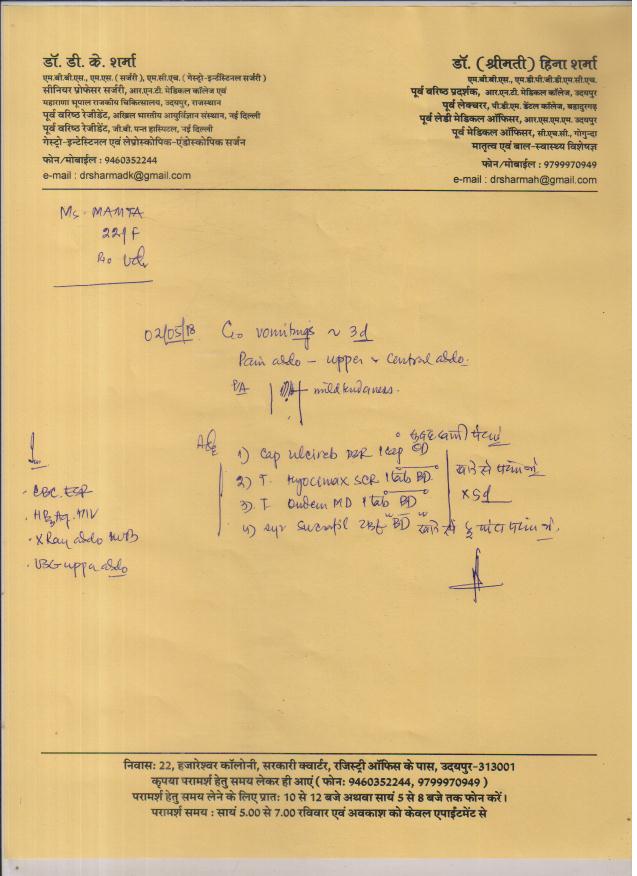 डॉ. डी. के. शर्मा
एम.बी.बी.एस., एम.एस. (सर्जरी), एम.सी.एच. (गेस्ट्रो-इन्टेस्टिनल सर्जरी)
सीनियर प्रोफेसर सर्जरी, आर.एन.टी. मेडिकल कॉलेज एवं
महाराणा भूपाल राजकीय चिकित्सालय, उदयपुर, राजस्थान
पूर्व वरिष्ठ रेजीडेंट, अखिल भारतीय आयुर्विज्ञान संस्थान, नई दिल्ली
पूर्व वरिष्ठ रेजीडेंट, जी.बी. पन्त हास्पिटल, नई दिल्ली
गेस्ट्रो-इन्टेस्टिनल एवं लेप्रोस्कोपिक-एंडोस्कोपिक सर्जन
फोन/मोबाईल : 9460352244
e-mail : drsharmadk@gmail.com
डॉ. (श्रीमती) हिना शर्मा
एम.बी.बी.एस., एम.डी.पी./जी.डी.एम.सी.एच.
पूर्व वरिष्ठ प्रदर्शक, आर.एन.टी. मेडिकल कॉलेज, उदयपुर
पूर्व लेक्चरर, पी.डी.एम. डेंटल कॉलेज, बहादुरगढ़
पूर्व लेडी मेडिकल ऑफिसर, आर.एस.एम.एम. उदयपुर
पूर्व मेडिकल ऑफिसर, सी.एच.सी., गोगुन्दा
मातृत्व एवं बाल-स्वास्थ्य विशेषज्ञ
फोन/मोबाईल : 9799970949
e-mail : drsharmah@gmail.com
Ms. MAMTA
22/F
R/o Udr
02/05/18 C/o vomitings ~ 3d
Pain abdo - upper & central abdo.
P/A mild tenderness.
Adv
1) Cap ulcireb DSR 1 cap OD
2) T. Hyocimax SCR 1 tab BD
3) T. Ondem MD 1 tab BD
x 5d
4) syr Sucrafil 2tsf BD
I
- CBC. ESR
- HBsAg. HIV
- X Ray abdo
- USG upper abdo
निवास: 22, हजारेश्वर कॉलोनी, सरकारी क्वार्टर, रजिस्ट्री ऑफिस के पास, उदयपुर-313001
कृपया परामर्श हेतु समय लेकर ही आएं ( फोन: 9460352244, 9799970949 )
परामर्श हेतु समय लेने के लिए प्रात: 10 से 12 बजे अथवा सायं 5 से 8 बजे तक फोन करें।
परामर्श समय : सायं 5.00 से 7.00 रविवार एवं अवकाश को केवल एपाईंटमेंट से